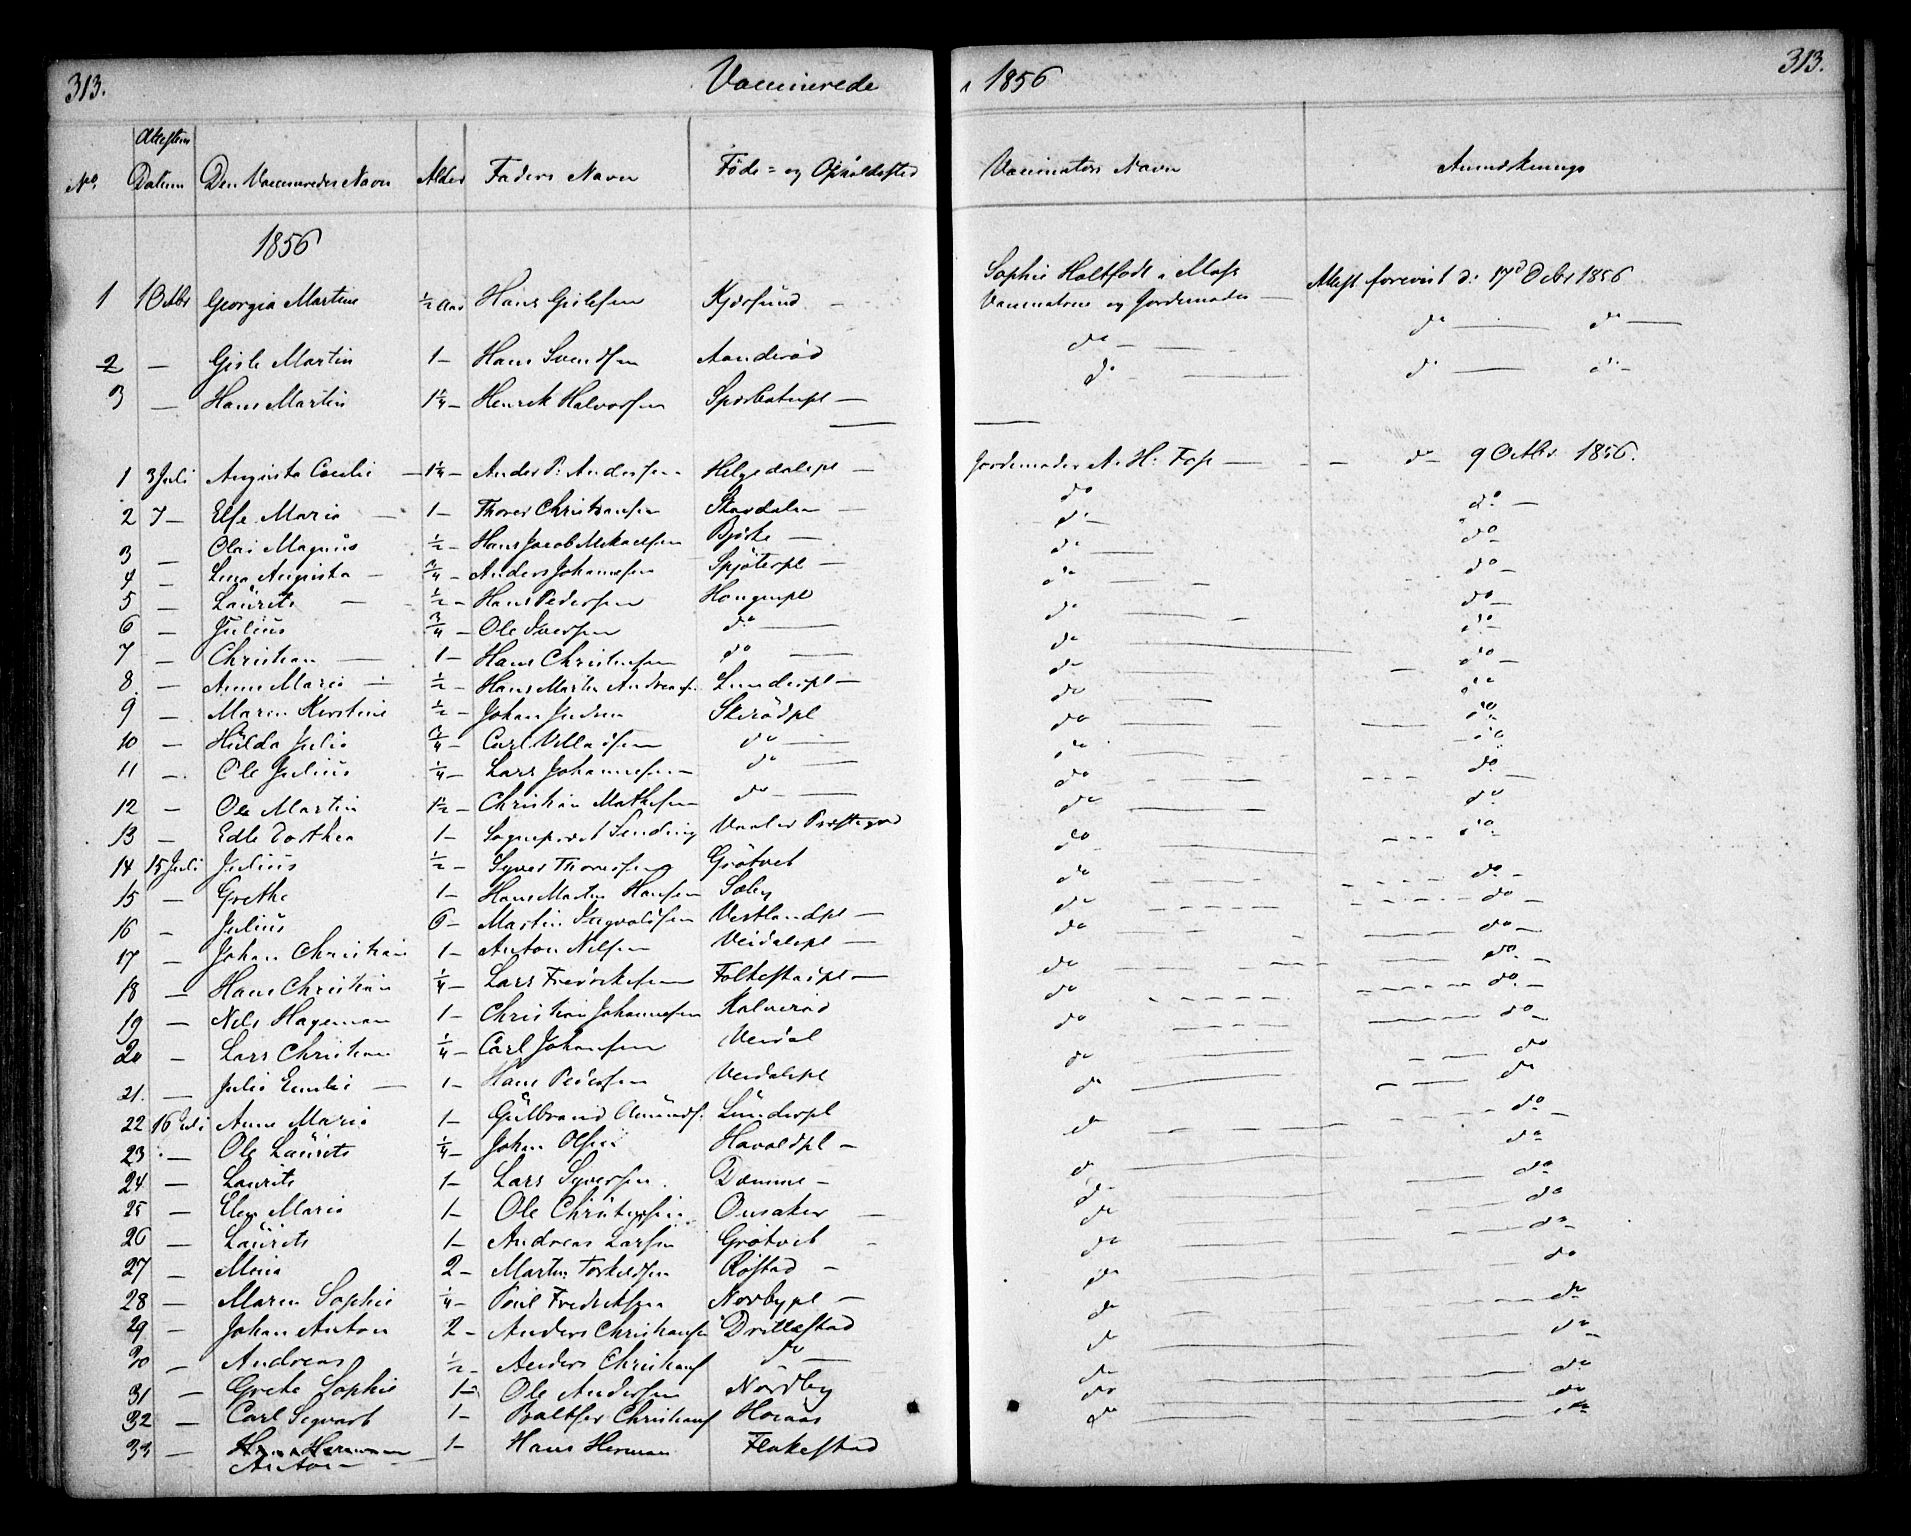 313.
Vaccinerede
i 1856
313.
No. Attestens Datum Den Vaccineredes Navn Alder Faders Navn Føde- og Opholdssted Vaccinators Navn Anmærkninger
1856
Sophie Holtfodt i Moss
1 1 Octbr Georgia Martine ½ Aar Hans Gislesen Kjærsund — Vaccinatrice og Jordemoder — Attest forevist d: 17d Octbr 1856
2 — Gisle Martin 1 — Hans Svendsen Aanderød do — do — do —
3 — Hans Martin 1¼ — Henrik Halvorsen Sperbatnpl — do — do — do —
1 3 Juli Augusta Cecilie — 1¼ — Anders P. Andersen Helgedalspl — Jordemoder A. H. Foss — do — 9 Octbr 1856.
2 7 — Else Maria — 1 — Thorer Christiansen Stavdalen — do do —
3 — Olai Magnus ½ — Hans Jacob Mikaelsen Bjørke — do — do
4 — Lina Augusta — ¾ — Anders Johannesen Spjøterpl — do — do —
5 — Laurits — ½ — Hans Pedersen Haugenpl do — do —
6 — Julius ¾ — Ole Iversen do — do — do —
7 — Christian — 1 — Hans Christensen do — do — do —
8 — Anne Maria — ½ — Hans Martin Andreasen Lunderpl — do — do
9 — Maren Kirstine ½ — Johan Jensen Skirødpl do — do
10 — Hulda Julie ¾ — Carl Villadsen do — do — do
11 — Ole Julius ¼ — Lars Johannesen — do — do — do —
12 — Ole Martin 1½ — Christian Mathisen do — do — do
13 — Edle Dorthea 1 — Sogneprest Sending Vaaler Prestegard do — do
14 15 Juli Julius ½ — Syver Thoresen Grøtvet do — do —
15 — Grethe 1 — Hans Martin Hansen Sæby do — do —
16 — Julius 6 — Martin Ingvaldsen Vestlandpl — do — do —
17 — Johan Christian 1 — Anton Nilsen Veidalspl — do — do —
18 — Hans Christian ¼ — Lars Fredriksen Folkestadpl — do — do —
19 — Nils Hageman 1 — Christian Johannesen Halverød do — do —
20 — Lars Christian ¼ — Carl Johansen Veidal do — do
21. — Julie Emilie — 1 — Hans Pedersen Veidalspl do — do
22 16 Juli Anne Maria 1 — Gulbrand Amundsf. Lunderpl do — do —
23 — Ole Laurits ¼ — Johan Olsen Havoldpl — do — do
24 — Laurits 1 — Lars Syversen Damme — do — do
25 — Elen Maria 1 — Ole Christophersen Onsaker — do — do
26 — Laurits 1 — Andreas Larsen Grøtvet do — do
27 — Mina 2 — Martin Torkildsen Røstad — do — do
28 — Maren Sophie ¼ — Paul Fredriksen Norbypl — do — do
29 — Johan Anton 2 — Anders Christiansen Drillestad do — do
30 — Andreas ½ — Anders Christiansf do — do — do
31 — Grete Sophie 1 — Ole Andersen Nordby do — do
32 — Carl Segvart 1 — Baltser Christiansf Horaas do — do
33 — Hans Herman 1 — Hans Herman Flakestad
Anton —